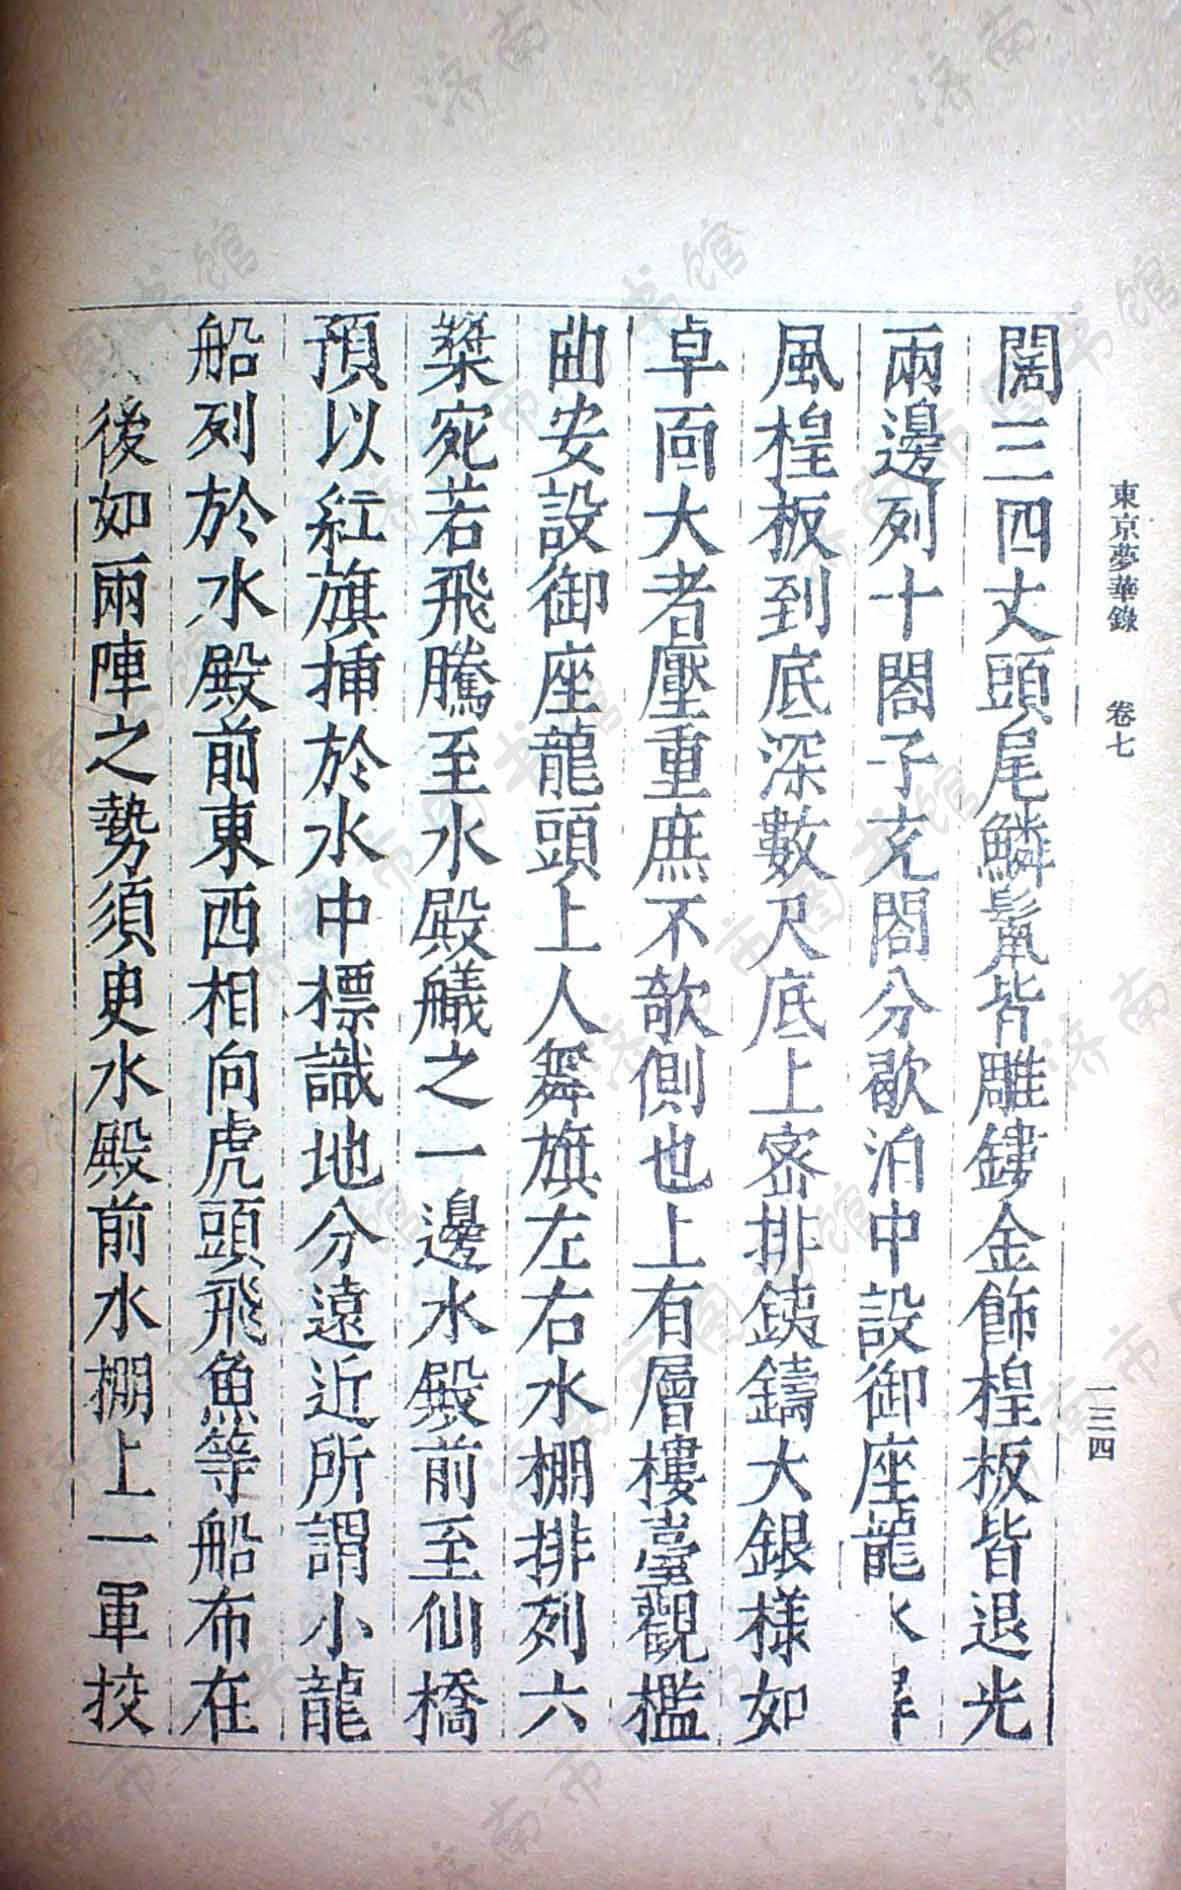 東京夢華錄 卷七 一三四
闊三四丈頭尾鱗鬣皆雕鏤金飾楻板皆退光
兩邊列十閤子充閤分歇泊中設御座龍水屏
風楻板到底深數尺底上密排鐵鑄大銀樣如
卓面大者壓重庶不欹側也上有層樓臺觀檻
曲安設御座龍頭上人舞旗左右水棚排列六
槳宛若飛騰至水殿艤之一邊水殿前至仙橋
預以紅旗揷於水中標識地分遠近所謂小龍
船列於水殿前東西相向虎頭飛魚等船布在
後如兩陣之勢須臾水殿前水棚上一軍挍
济南市图书馆